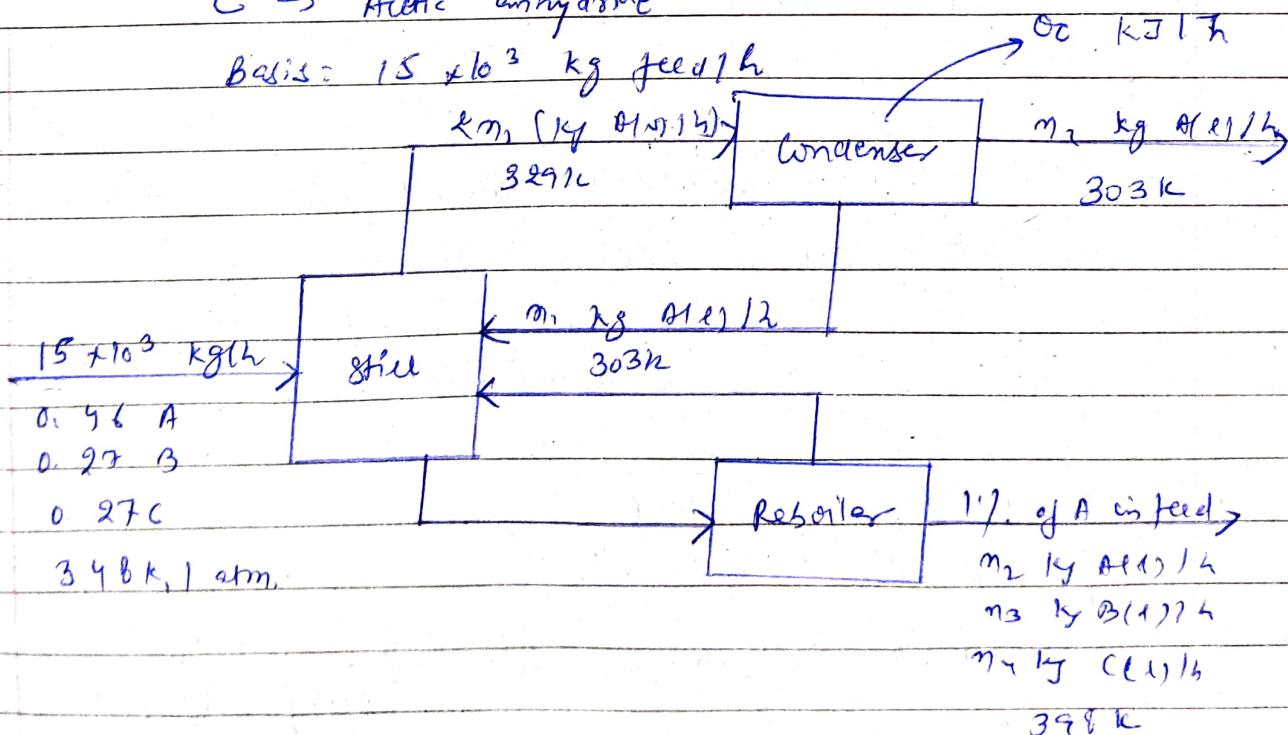 C → Acetic anhydride
Basis: 15 x 10³ kg feed/h
Qc kJ/h
2n₁ (kg A(v)/h)
329K
Condenser
n₁ kg A(l)/h
303K
n₁ kg A(l)/h
303K
15 x 10³ kg/h
0.46 A
0.27 B
0.27 C
348 K, 1 atm.
Still
Reboiler
1% of A in feed
n₂ kg A(l)/h
n₃ kg B(l)/h
n₄ kg C(l)/h
398 K